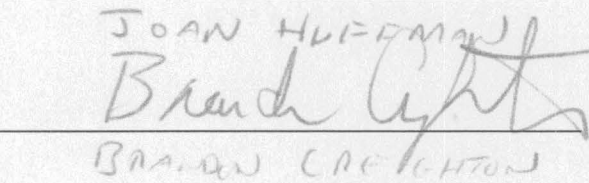 JOAN HUFFMAN
Brandon Creighton
BRANDON CREIGHTON